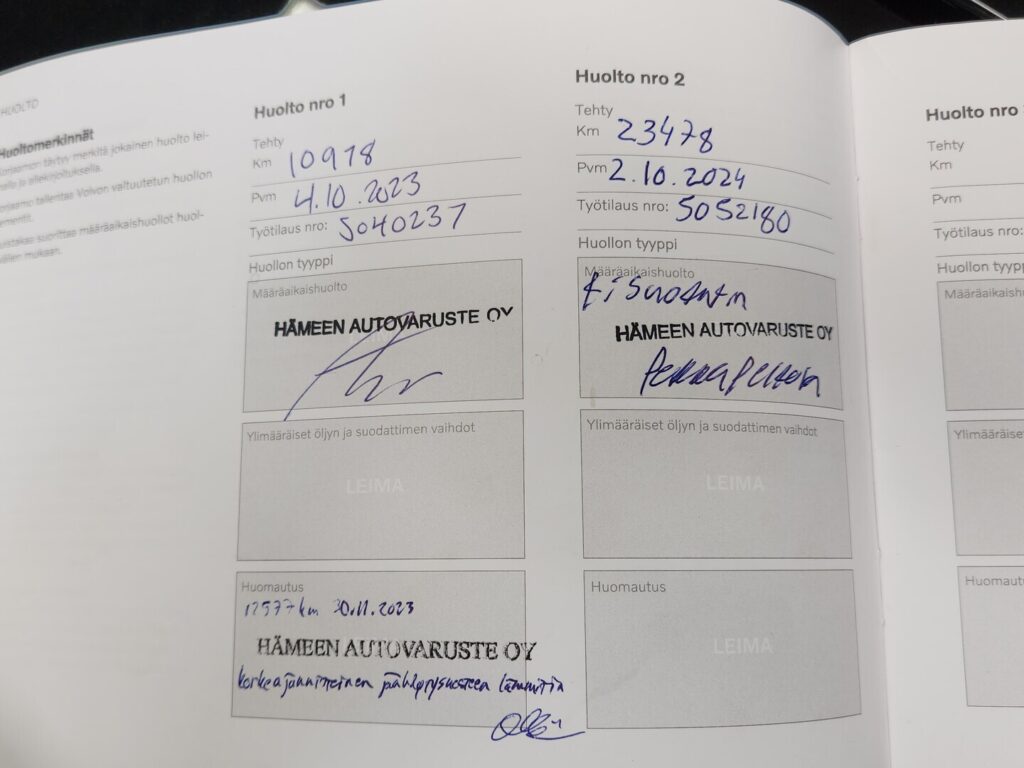 HUOLTO
Huoltomerkinnät
tulee merkitä jokainen huolto lei-
malla ja allekirjoituksella.
tallentaa Volvon valtuutetun huollon
suorittaa määräaikaishuollot huol-
mukaan.
Huolto nro 1
Tehty
Km 10978
Pvm 4.10.2023
Työtilaus nro: 5040237
Huollon tyyppi
Määräaikaishuolto
HÄMEEN AUTOVARUSTE OY
Ylimääräiset öljyn ja suodattimen vaihdot
LEIMA
Huomautus
12577 km 30.11.2023
HÄMEEN AUTOVARUSTE OY
korkeajännitteinen lämmitin
Huolto nro 2
Tehty
Km 23478
Pvm 2.10.2024
Työtilaus nro: 5052180
Huollon tyyppi
Määräaikaishuolto
Ei suodatin
HÄMEEN AUTOVARUSTE OY
Ylimääräiset öljyn ja suodattimen vaihdot
LEIMA
Huomautus
LEIMA
Huolto nro
Tehty
Km
Pvm
Työtilaus nro:
Huollon tyypp
Määräaikaishu
Ylimääräiset
Huomautu